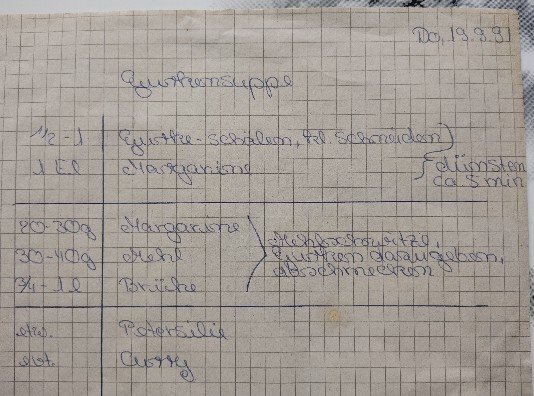 Do, 19.9.91
Gurkensuppe
1/2 - 1 Gurke - schälen, kl. schneiden
1 El Margarine
dünsten
ca. 5 min
20-30g Margarine
30-40g Mehl
3/4 - 1 l Brühe
Mehlschwitze,
Gurken dazugeben,
abschmecken
etw. Petersilie
evt. Curry